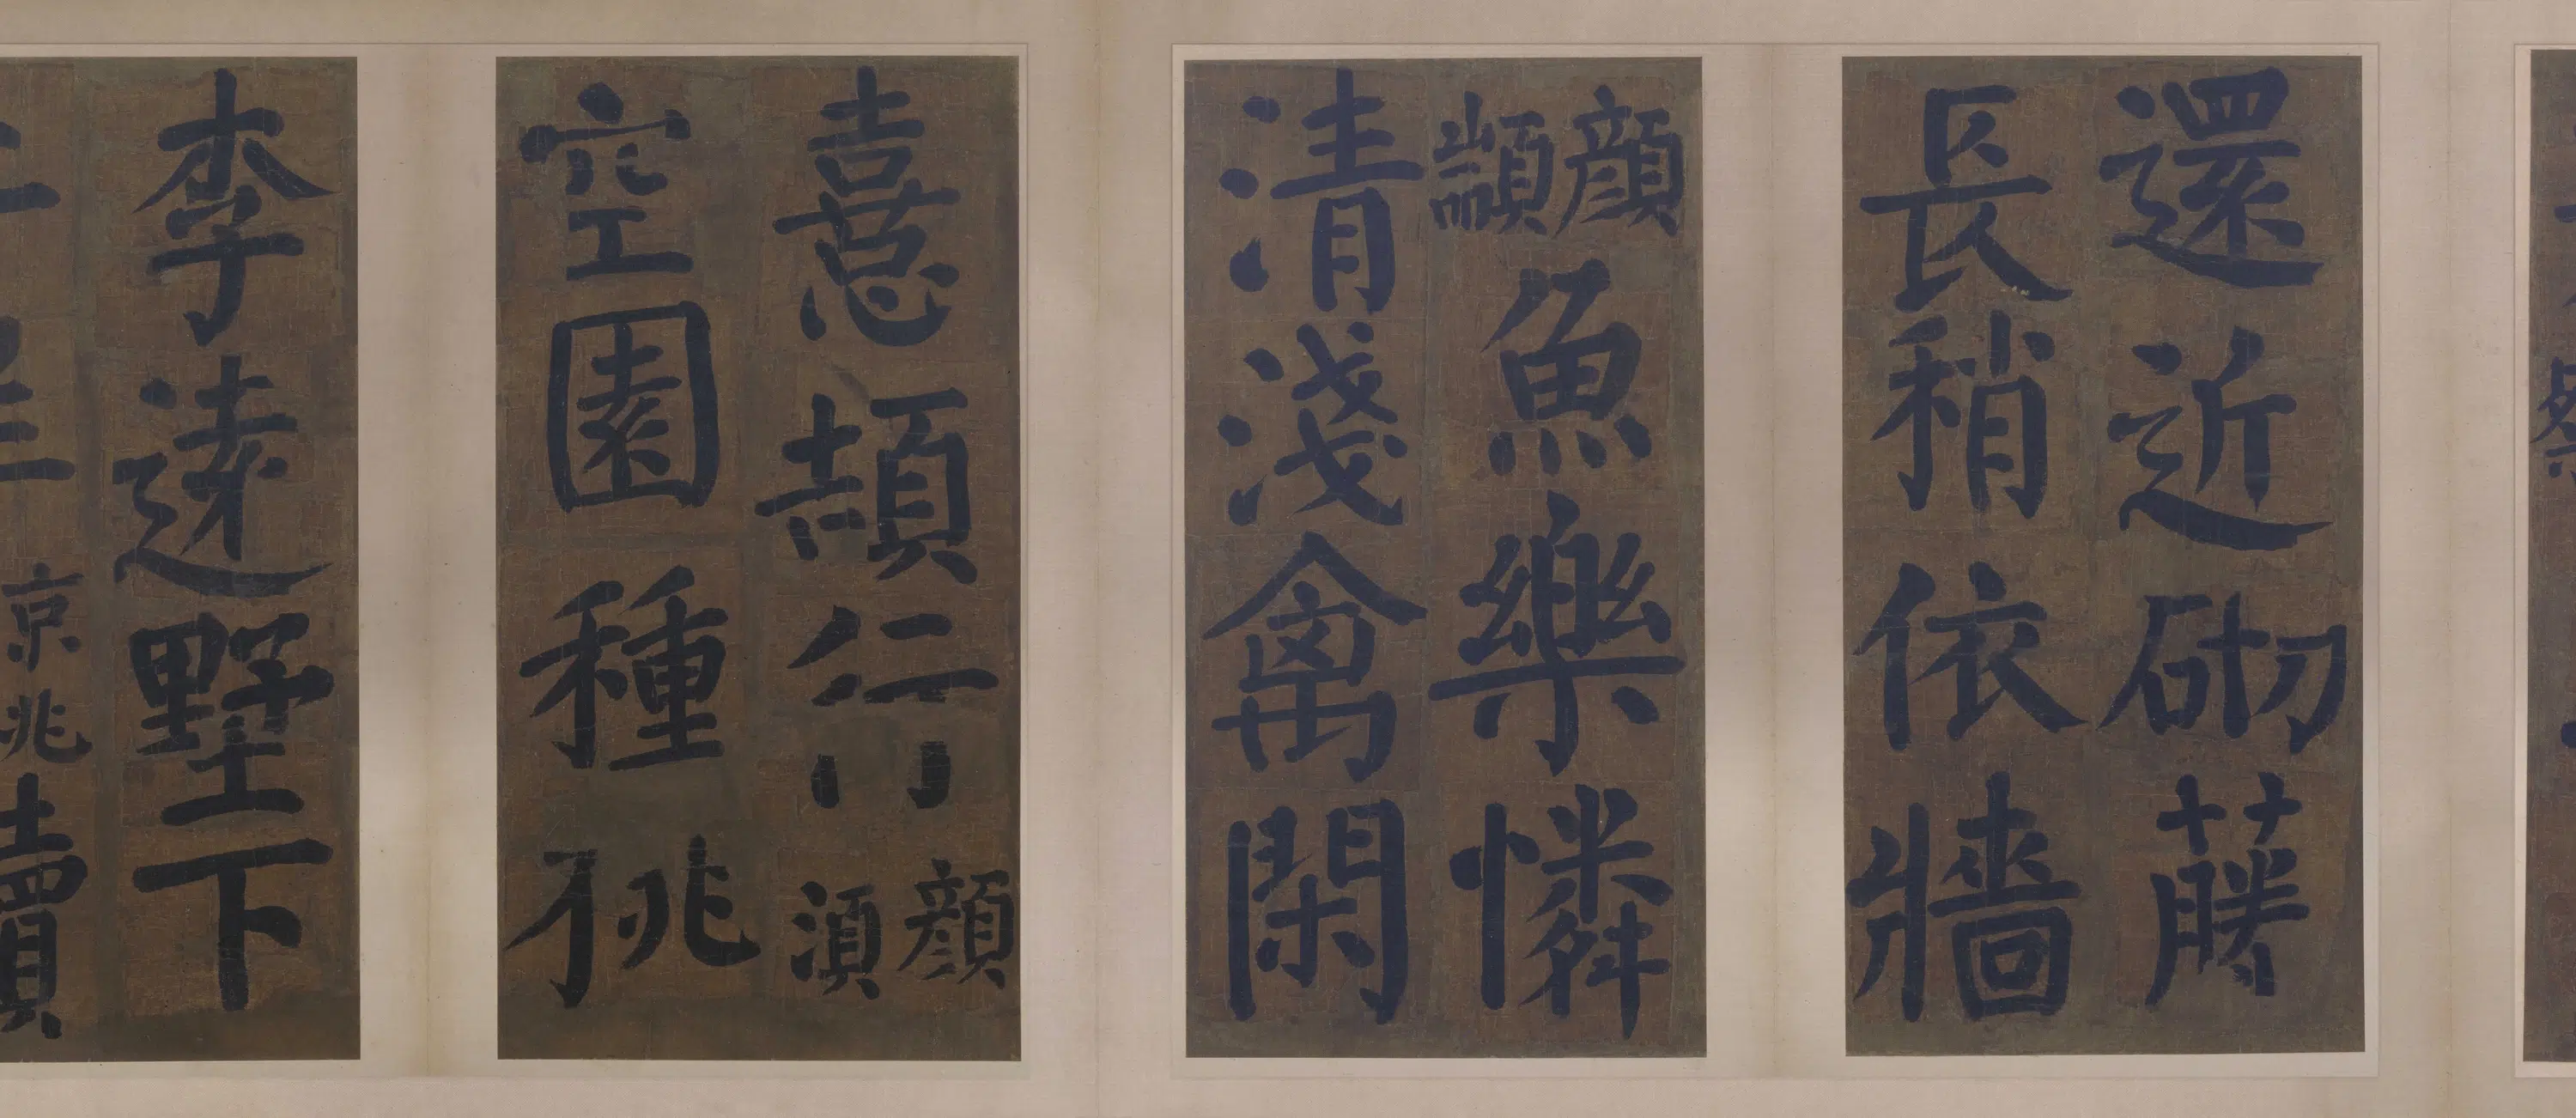 還近砌藤
長稍依牆
顏顓魚樂憐
清淺禽閑
憙頡行顏湏
空園種桃
李遠墅下
京兆